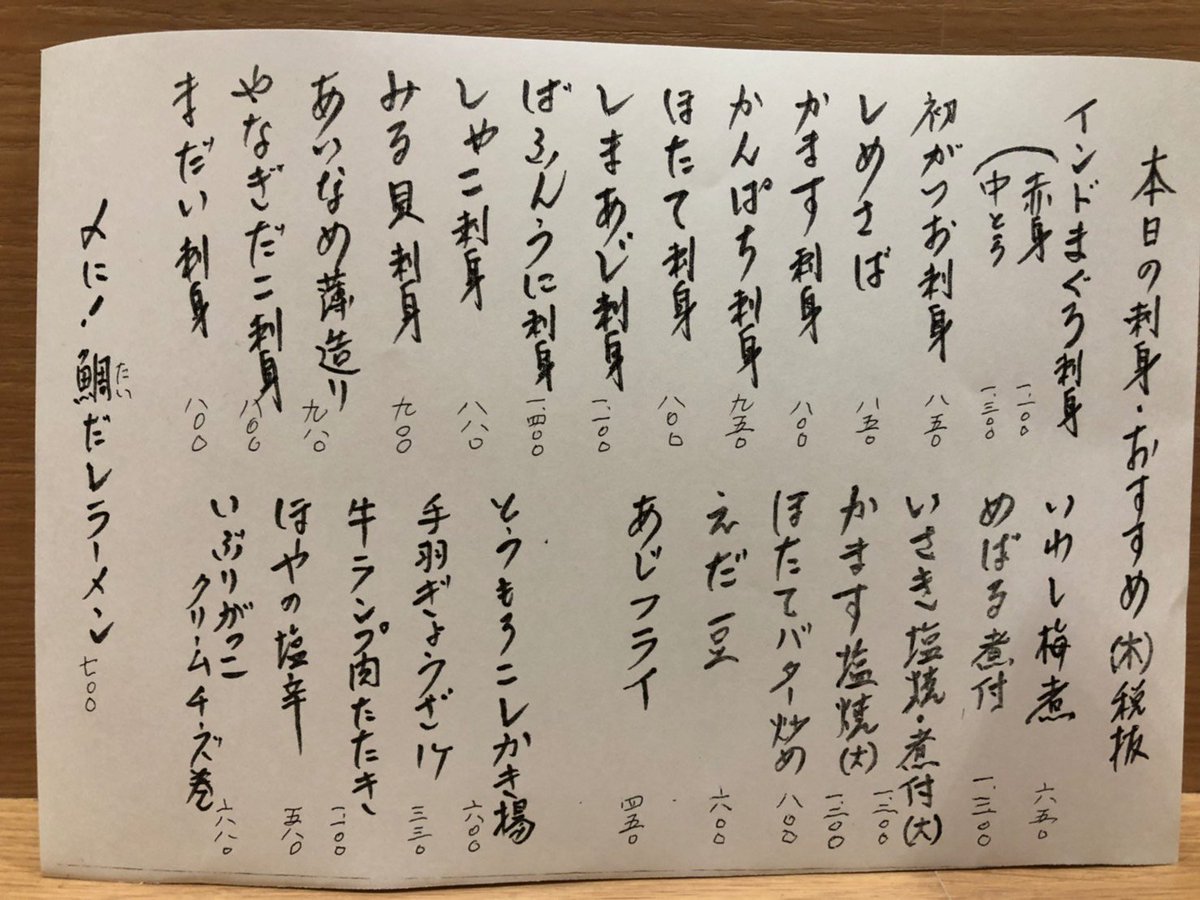 本日の刺身・おすすめ(木)税抜
インドまぐろ刺身
赤身 一、二〇〇
中とろ 一、三〇〇
初がつお刺身 八五〇
しめさば 八五〇
かます刺身 八〇〇
かんぱち刺身 九五〇
ほたて刺身 八〇〇
しまあじ刺身 一、二〇〇
ばふんうに刺身 一、四〇〇
しゃこ刺身 八八〇
みる貝刺身 九〇〇
あいなめ薄造り 九八〇
やなぎだこ刺身 八〇〇
まだい刺身 八〇〇
いわし梅煮 六五〇
めばる煮付 一、三〇〇
いさき塩焼・煮付(大) 一、三〇〇
かます塩焼(大) 一、二〇〇
ほたてバター炒め 八〇〇
えだ豆 六〇〇
あじフライ 四五〇
とうもろこしかき揚 六〇〇
手羽ぎょうざ1ケ 三三〇
牛ランプ肉たたき 一、二〇〇
ほやの塩辛 五八〇
いぶりがっこ
クリームチーズ巻 六八〇
〆に!鯛だしラーメン 七〇〇
たい